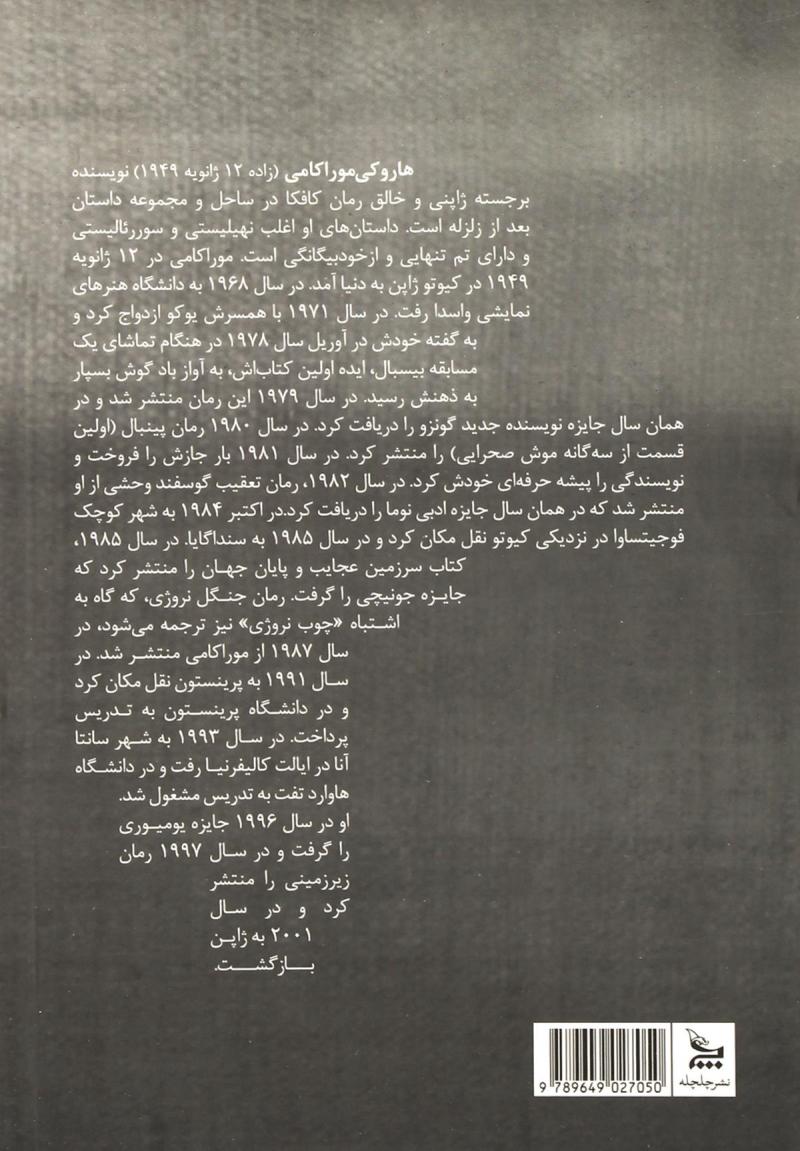 هاروکی‌موراکامی (زاده ۱۲ ژانویه ۱۹۴۹) نویسنده
برجسته ژاپنی و خالق رمان کافکا در ساحل و مجموعه داستان
بعد از زلزله است. داستان‌های او اغلب نهیلیستی و سوررئالیستی
و دارای تم تنهایی و ازخودبیگانگی است. موراکامی در ۱۲ ژانویه
۱۹۴۹ در کیوتو ژاپن به دنیا آمد. در سال ۱۹۶۸ به دانشگاه هنرهای
نمایشی واسدا رفت. در سال ۱۹۷۱ با همسرش یوکو ازدواج کرد و
به گفته خودش در آوریل سال ۱۹۷۸ در هنگام تماشای یک
مسابقه بیسبال، ایده اولین کتاب‌اش، به آواز باد گوش بسپار
به ذهنش رسید. در سال ۱۹۷۹ این رمان منتشر شد و در
همان سال جایزه نویسنده جدید گونزو را دریافت کرد. در سال ۱۹۸۰ رمان پینبال (اولین
قسمت از سه‌گانه موش صحرایی) را منتشر کرد. در سال ۱۹۸۱ بار جازش را فروخت و
نویسندگی را پیشه حرفه‌ای خودش کرد. در سال ۱۹۸۲، رمان تعقیب گوسفند وحشی از او
منتشر شد که در همان سال جایزه ادبی نوما را دریافت کرد.در اکتبر ۱۹۸۴ به شهر کوچک
فوجیتساوا در نزدیکی کیوتو نقل مکان کرد و در سال ۱۹۸۵ به سنداگایا. در سال ۱۹۸۵،
کتاب سرزمین عجایب و پایان جهان را منتشر کرد که
جایزه جونیچی را گرفت. رمان جنگل نروژی، که گاه به
اشتباه «چوب نروژی» نیز ترجمه می‌شود، در
سال ۱۹۸۷ از موراکامی منتشر شد. در
سال ۱۹۹۱ به پرینستون نقل مکان کرد
و در دانشگاه پرینستون به تدریس
پرداخت. در سال ۱۹۹۳ به شهر سانتا
آنا در ایالت کالیفرنیا رفت و در دانشگاه
هاوارد تفت به تدریس مشغول شد.
او در سال ۱۹۹۶ جایزه یومیوری
را گرفت و در سال ۱۹۹۷ رمان
زیرزمینی را منتشر
کرد و در سال
۲۰۰۱ به ژاپن
بازگشت.
9 789649 027050
نشرچلچله